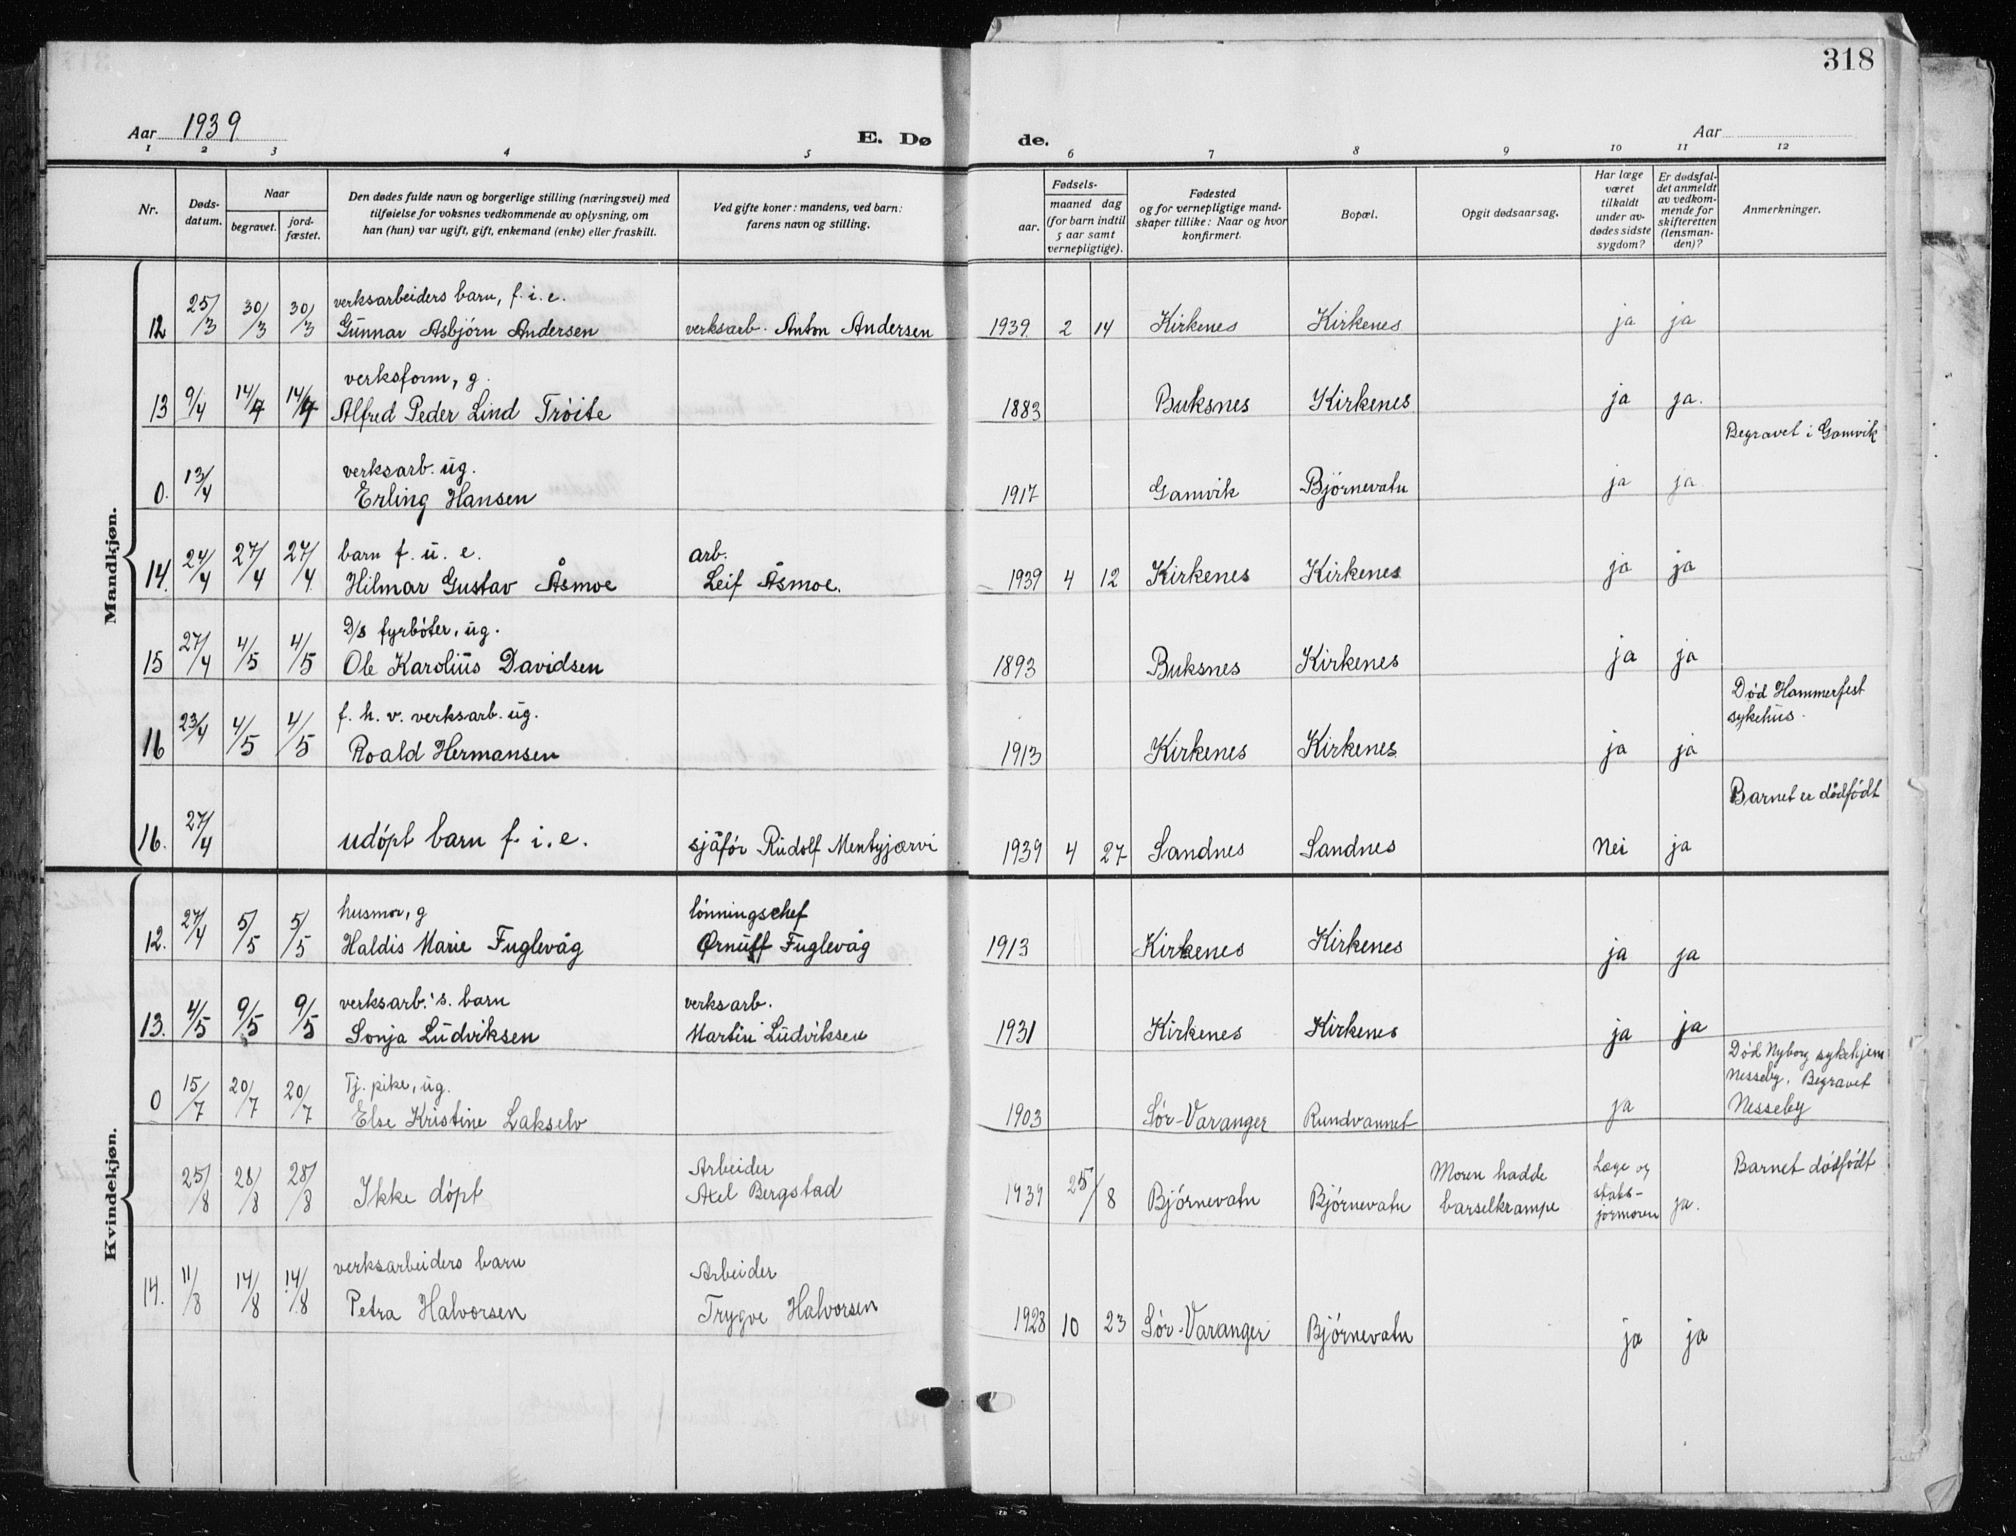 318
Aar 1939
E. Dø de.
Aar
1 2 3 4 5 6 7 8 9 10 11 12
Nr.
Døds-
datum.
Naar
begravet.
jord-
fæstet.
Den dødes fulde navn og borgerlige stilling (næringsvei) med
tilføielse for voksnes vedkommende av oplysning, om
han (hun) var ugift, gift, enkemand (enke) eller fraskilt.
Ved gifte koner: mandens, ved barn:
farens navn og stilling.
Fødsels-
aar.
maaned dag
(for barn indtil
5 aar samt
vernepligtige).
Fødested
og for vernepligtige mand-
skaper tillike: Naar og hvor
konfirmert.
Bopæl.
Opgit dødsaarsag.
Har læge
været
tilkaldt
under av-
dødes sidste
sygdom?
Er dødsfal-
det anmeldt
av vedkom-
mende for
skifteretten
(lensman-
den)?
Anmerkninger.
Mandkjøn.
verksarbeiders barn, f. i. e.
12 25/3 30/3 30/3 Gunnar Asbjörn Andersen verksarb. Anton Andersen 1939 2 14 Kirkenes Kirkenes ja ja
verksform, g.
13 9/4 14/4 14/4 Alfred Peder Lind Tröite 1883 Buksnes Kirkenes ja ja.
Begravet i Gamvik
verksarb. ug.
0. 13/4 Erling Hansen 1917 Gamvik Björnevatn ja ja
barn f. u. e. arb.
14. 24/4 27/4 27/4 Hilmar Gustav Åsmoe Leif Åsmoe. 1939 4 12 Kirkenes Kirkenes ja ja
D/s fyrböter, ug.
15 27/4 4/5 4/5 Ole Karolius Davidsen 1893 Buksnes Kirkenes ja ja
Död Hammerfest
sykehus.
f. h. v. verksarb. ug.
16 23/4 4/5 4/5 Roald Hermansen 1913 Kirkenes Kirkenes ja ja
Barnet er dödfödt
16. 27/4 udöpt barn f. i. e. sjåför Rudolf Mentyjærvi 1939 4 27 Sandnes Sandnes Nei ja
Kvindekjøn.
husmor, g lönningschef
12. 27/4 5/5 5/5 Haldis Marie Fuglevåg Ørnulf Fuglevåg 1913 Kirkenes Kirkenes ja ja
verksarb.'s. barn verksarb.
13. 4/5 9/5 9/5 Sonja Ludviksen Martin Ludviksen 1931 Kirkenes Kirkenes ja ja
Död Nyborg sykehjem
Nesseby. Begravet
Nesseby
Tj. pike, ug.
0 15/7 20/7 20/7 Else Kristine Lakselv 1903 Sör-Varanger Rundvannet ja
Arbeider Moren hadde Læge og Barnet dödfödt
25/8 28/8 28/8 Ikke döpt Axel Bergstad 1939 25/8 Björnevatn Björnevatn barselkrampe stats-
jormoren ja.
verksarbeiders barn Arbeider
14. 11/8 14/8 14/8 Petra Halvorsen Trygve Halvorsen 1928 10 23 Sör-Varanger Björnevatn ja ja